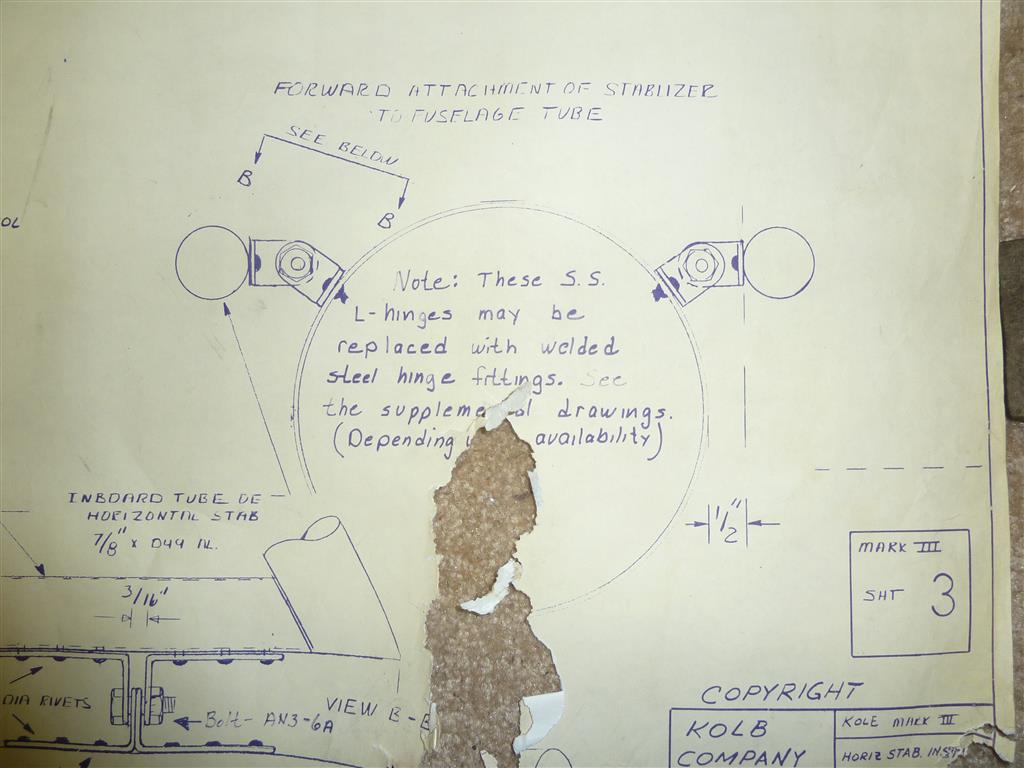 FORWARD ATTACHMENT OF STABLIZER
TO FUSELAGE TUBE
SEE BELOW
B
B
OL
Note: These S.S.
L-hinges may be
replaced with welded
steel hinge fittings. See
the supplemental drawings.
(Depending availability)
INBOARD TUBE OF
HORIZONTAL STAB
7/8" x 049 AL.
3/16"
1/2"
MARK III
SHT 3
DIA RIVETS
Bolt- AN3-6A
VIEW B-B
COPYRIGHT
KOLB
COMPANY
KOLB MARK III
HORIZ STAB. INST